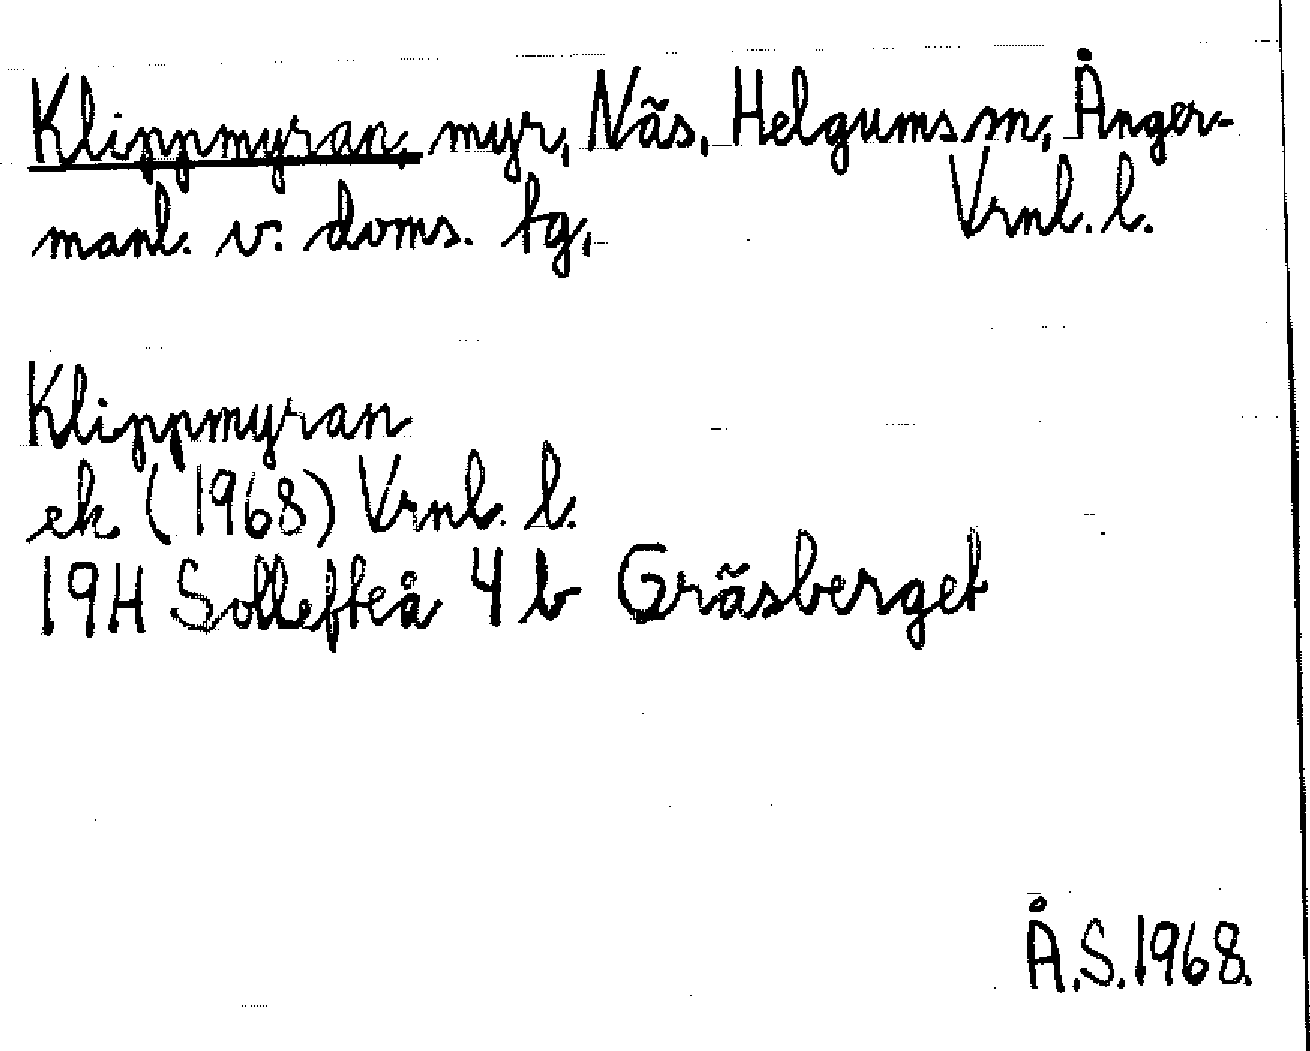 Klippmyran, myr, Näs, Helgums sn, Ånger-
manl. v. doms. tg,
Vrnl. l.
Klippmyran
ek (1968) Vrnl. l.
19H Sollefteå 4 b Gräsberget
Å.S.1968.